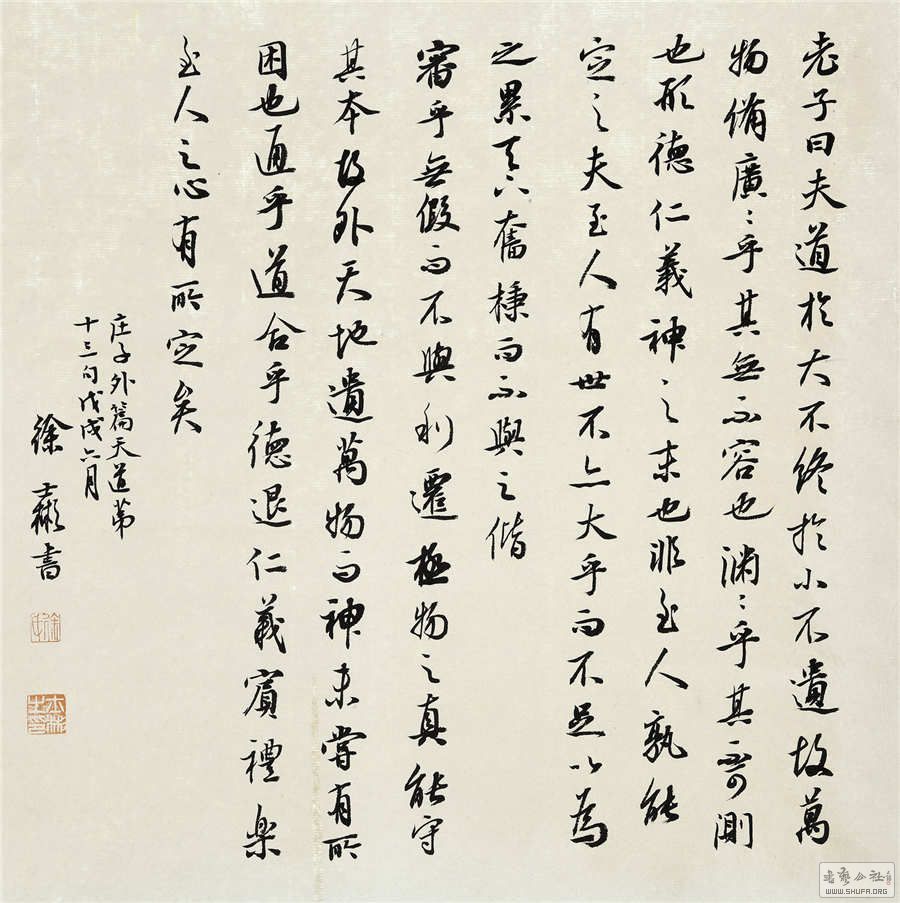 老子曰夫道於大不終於小不遺故萬
物備廣〻乎其無不容也淵〻乎其不可測
也形德仁義神之末也非至人孰能
定之夫至人有世不亦大乎而不足以為
之累天下奮棅而不與之偕
審乎無假而不與利遷極物之真能守
其本故外天地遺萬物而神未嘗有所
困也通乎道合乎德退仁義賓禮楽
至人之心有所定矣
庄子外篇天道第
十三句戊戌六月
徐士彬書
WWW.SHUFA.ORG